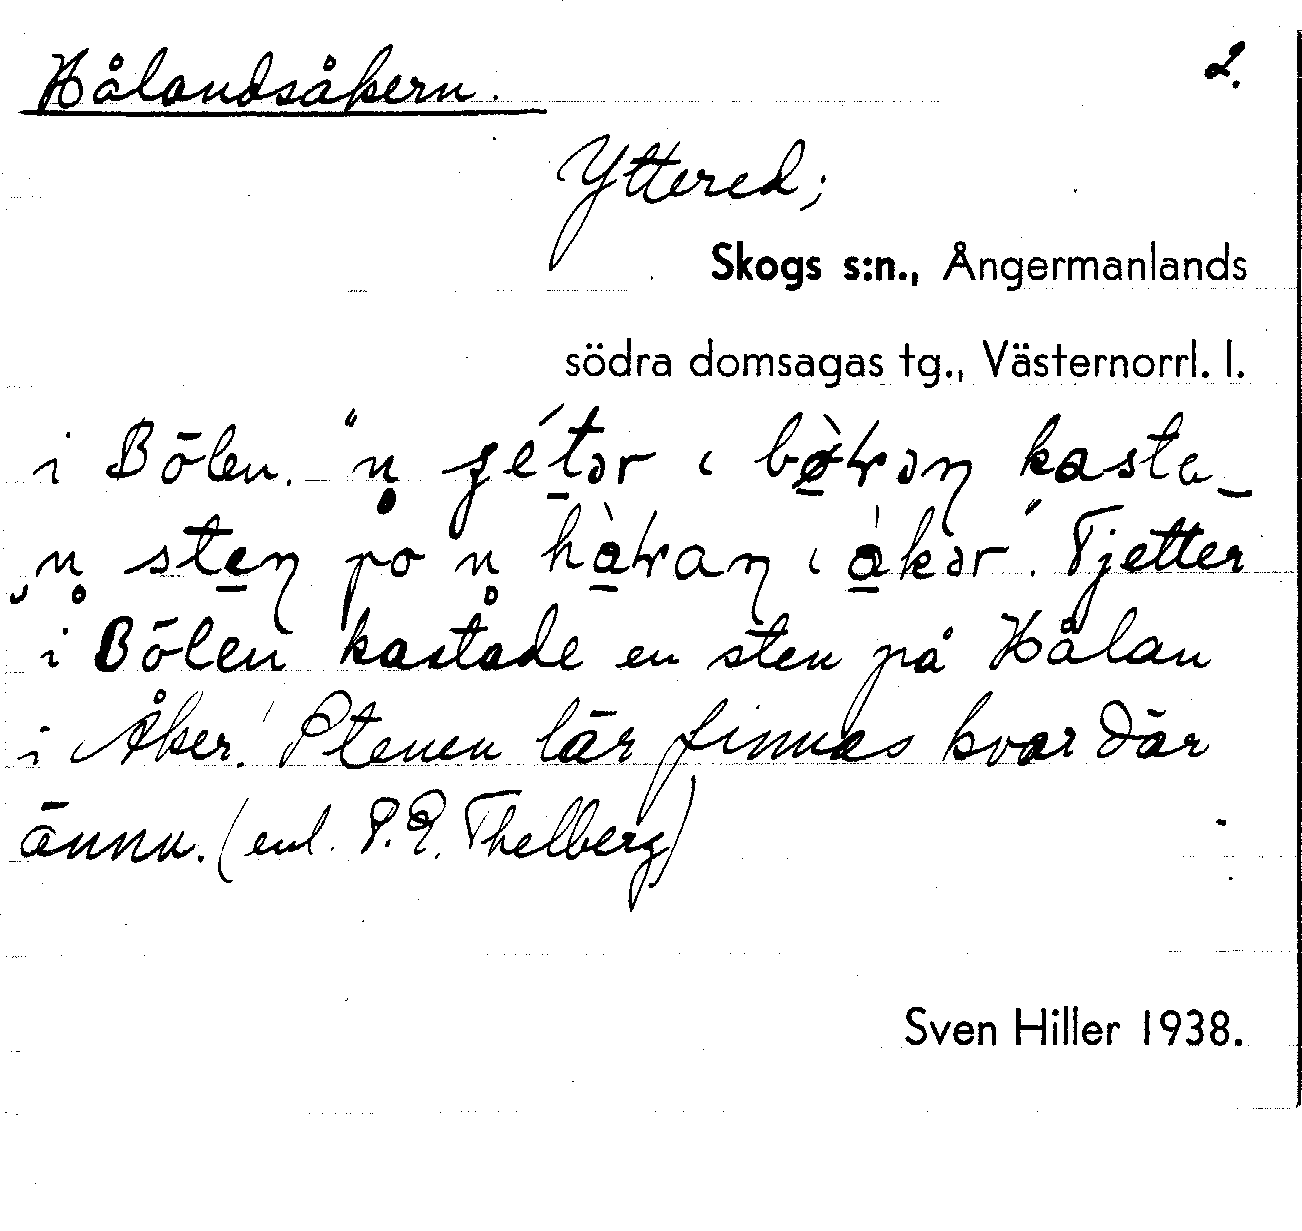 Hålandsåkern. 2.
Yttered;
Skogs s:n., Ångermanlands
södra domsagas tg., Västernorrl. l.
i Bölen. "n̥ ʝétər ɩ bø̀ɽəɳ kasta
n̥ steɳ po n̥ hàɽaɳ ɩ àkər". Tjetter
i Bölen kastade en sten på Hålan
i Åker. Stenen lär finnas kvar där
ännu. (enl. P.E. Thelberg)
Sven Hiller 1938.